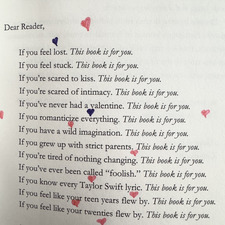 Dear Reader,
If you feel lost. This book is for you.
If you feel stuck. This book is for you.
If you're scared to kiss. This book is for you.
If you're scared of intimacy. This book is for you.
If you've never had a valentine. This book is for you.
If you romanticize everything. This book is for you.
If you have a wild imagination. This book is for you.
If you grew up with strict parents. This book is for you.
If you're tired of nothing changing. This book is for you.
If you've ever been called "foolish." This book is for you.
If you know every Taylor Swift lyric. This book is for you.
If you feel like your teen years flew by. This book is for you.
If you feel like your twenties flew by. This book is for you.